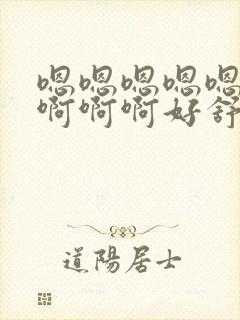 嗯嗯嗯嗯嗯
啊啊啊好舒
道陽居士